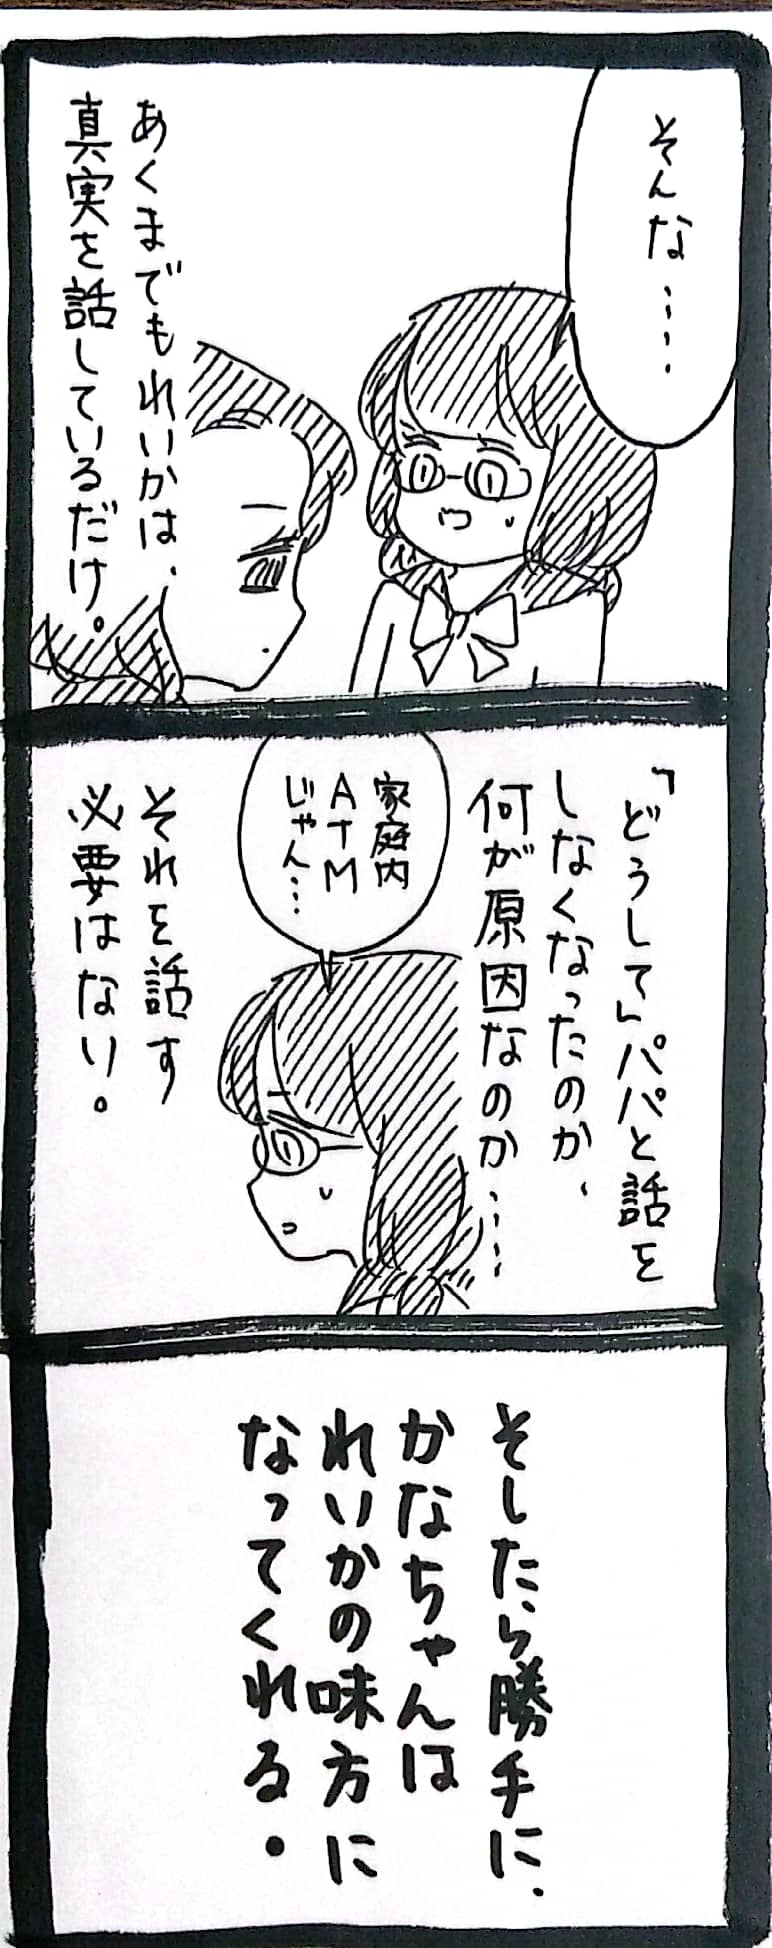 そんな……
あくまでもれいかは、
真実を話しているだけ。
「どうして」パパと話を
しなくなったのか、
何が原因なのか……
家庭内
ATM
じゃん…
それを話す
必要はない。
そしたら勝手に、
かなちゃんは
れいかの味方に
なってくれる。